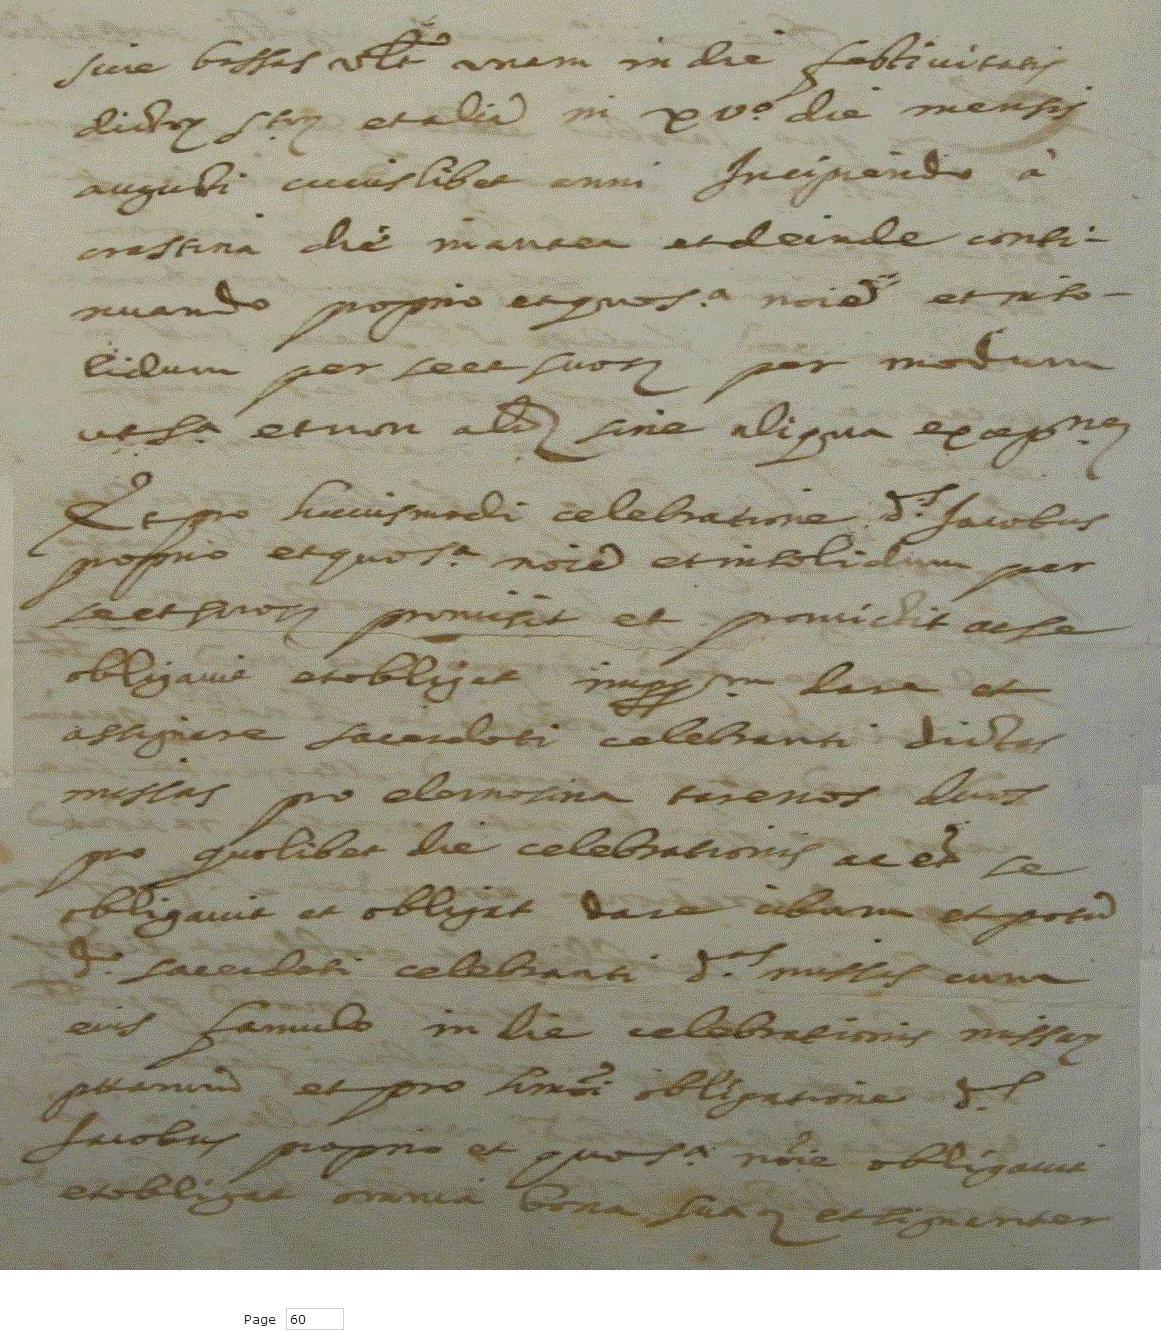 sive bassas vult unam in die festivitatis
dictor. Sctor. et aliā in xvo. die mensis
augusti cuiuslibet anni Incipiendo à
crastina die mantea et deinde conti-
nuando proprio et quo s.a noie et inso-
lidum per se et suos per modum
ut s.a et non alr sine aliqua exceptne
Et pro huiusmodi celebratione d.s Jacobus
proprio et quo s.a noie et insolidum per
se et suos promisit et promictit ac se
obligavit et obligat dare et
assignare sacerdoti celebranti dictas
missas pro elemosina tarenos duos
pro quolibet die celebrationis ac et se
obligavit et obligat dare cibum et potū
d.o sacerdoti celebranti d.as missas cum
eius famulo in die celebrationis missar.
et pro obligatione d.s
Jacobus proprio et quo s.a noie obligavit
et obligat omnia bona sua et signanter
Page 60